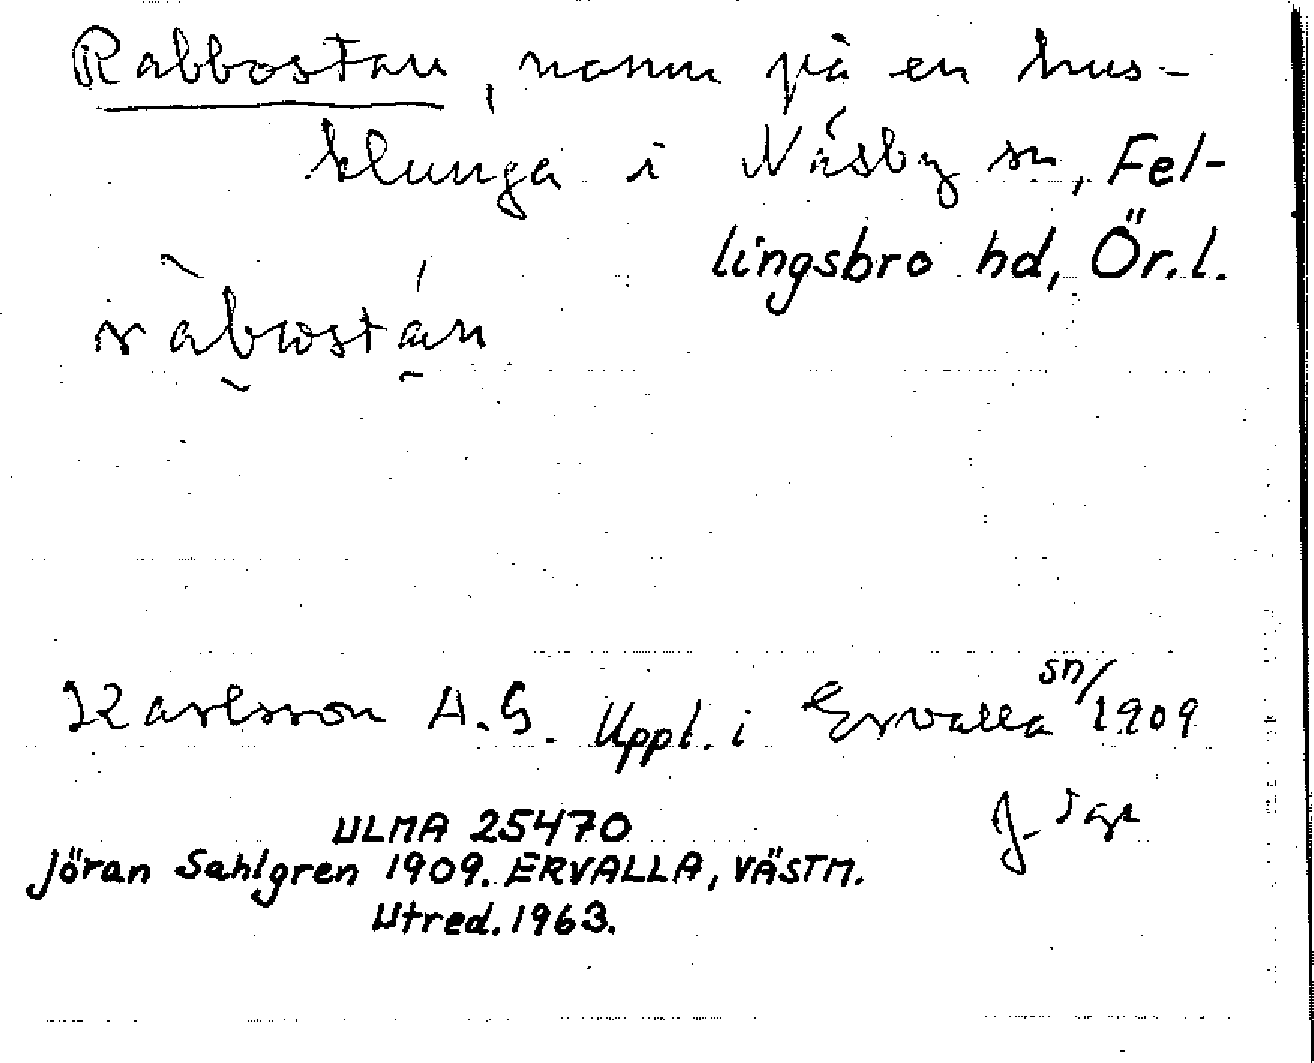 Rabbostan, namn på en hus-
klunga i Näsby sn, Fel-
lingsbro hd, Ör.l.
Karlsson A.G. Uppt. i Ervalla sn/1909
ULMA 25470
Jöran Sahlgren 1909. ERVALLA, VÄSTM.
Utred. 1963.